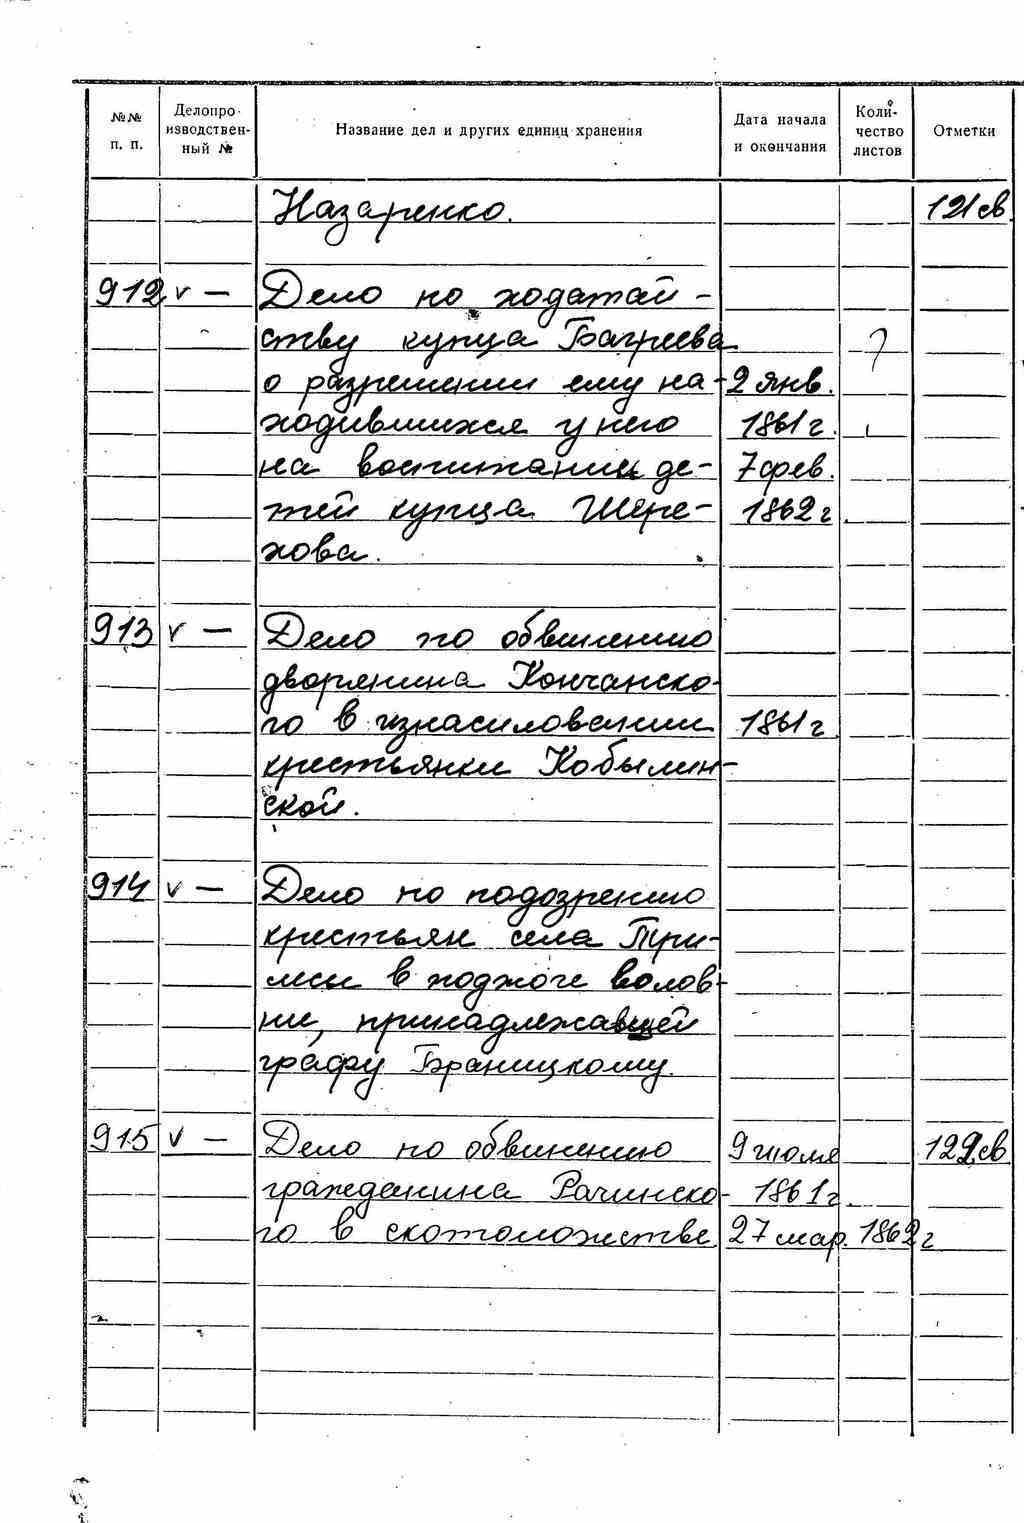 №№ п. п. Делопроизводственный № Название дел и других единиц хранения Дата начала и окончания Количество листов Отметки
Назаренко. 121 св.
912 v — Дело по ходатай-
ству купца Багреева ?
о разрешении ему на- 2 янв.
ходившихся у него 1861 г.
на воспитании де- 7 фев.
тей купца Шере- 1862 г
хова.
913 v — Дело по обвинению
дворянина Кончанско-
го в изнасиловании 1861 г
крестьянки Кобылин-
ской.
914 v — Дело по подозрению
крестьян села
в поджоге волов-
ни, принадлежавшей
графу Браницкому.
915 v — Дело по обвинению 9 июля 122 св
гражданина Рачинско- 1861 г.
го в скотоложстве. 27 мар. 1862 г